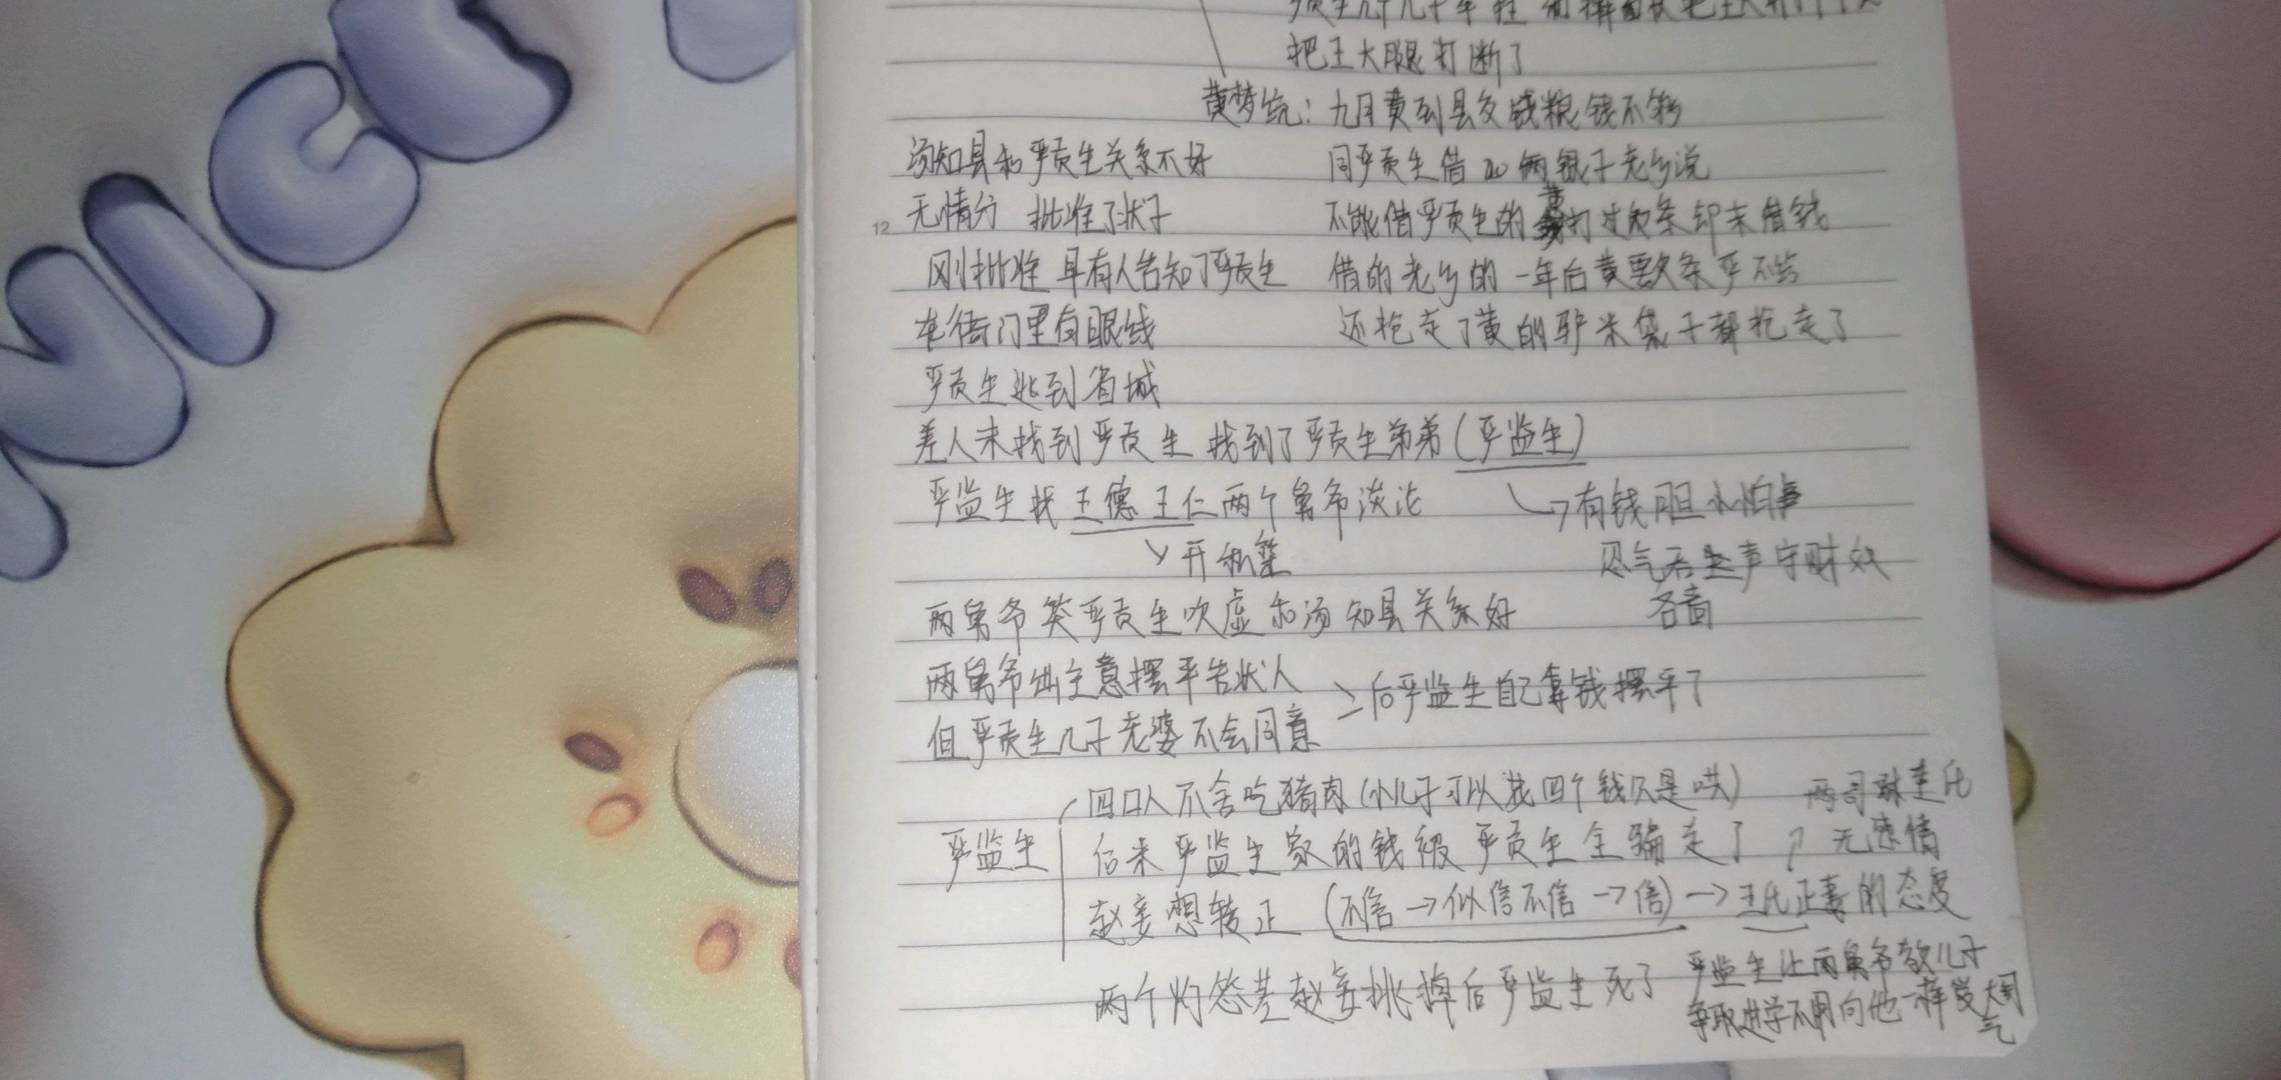 把王大腿打断了
黄梦统：九月黄到县交钱粮钱不够
汤知县和严贡生关系不好
同严贡生借20两银子老乡说
无情分 批准了状子
不能借严贡生的黄打过欠条却未借钱
12
刚批准 早有人告知了严贡生
借的老乡的 一年后黄要欠条严不给
在衙门里有眼线
还抢走了黄的驴米袋子都抢走了
严贡生逃到省城
差人未找到严贡生 找到了严贡生弟弟(严监生)
严监生找王德王仁两个舅爷谈论
→有钱胆小怕事
开私塾
忍气吞声守财奴
吝啬
两舅爷笑严贡生吹虚和汤知县关系好
两舅爷出主意摆平告状人
但严贡生儿子老婆不会同意
后严监生自己拿钱摆平了
严监生
四口人不舍吃猪肉(小儿子可以找四个钱只是哄)
后来严监生家的钱被严贡生全骗走了
赵妾想转正 (不信→似信不信→信)→王氏正妻的态度
无感情
两个灯芯草赵妾挑掉后严监生死了
严监生让两舅爷教儿子
争取进学不用向他一样受大哥
气